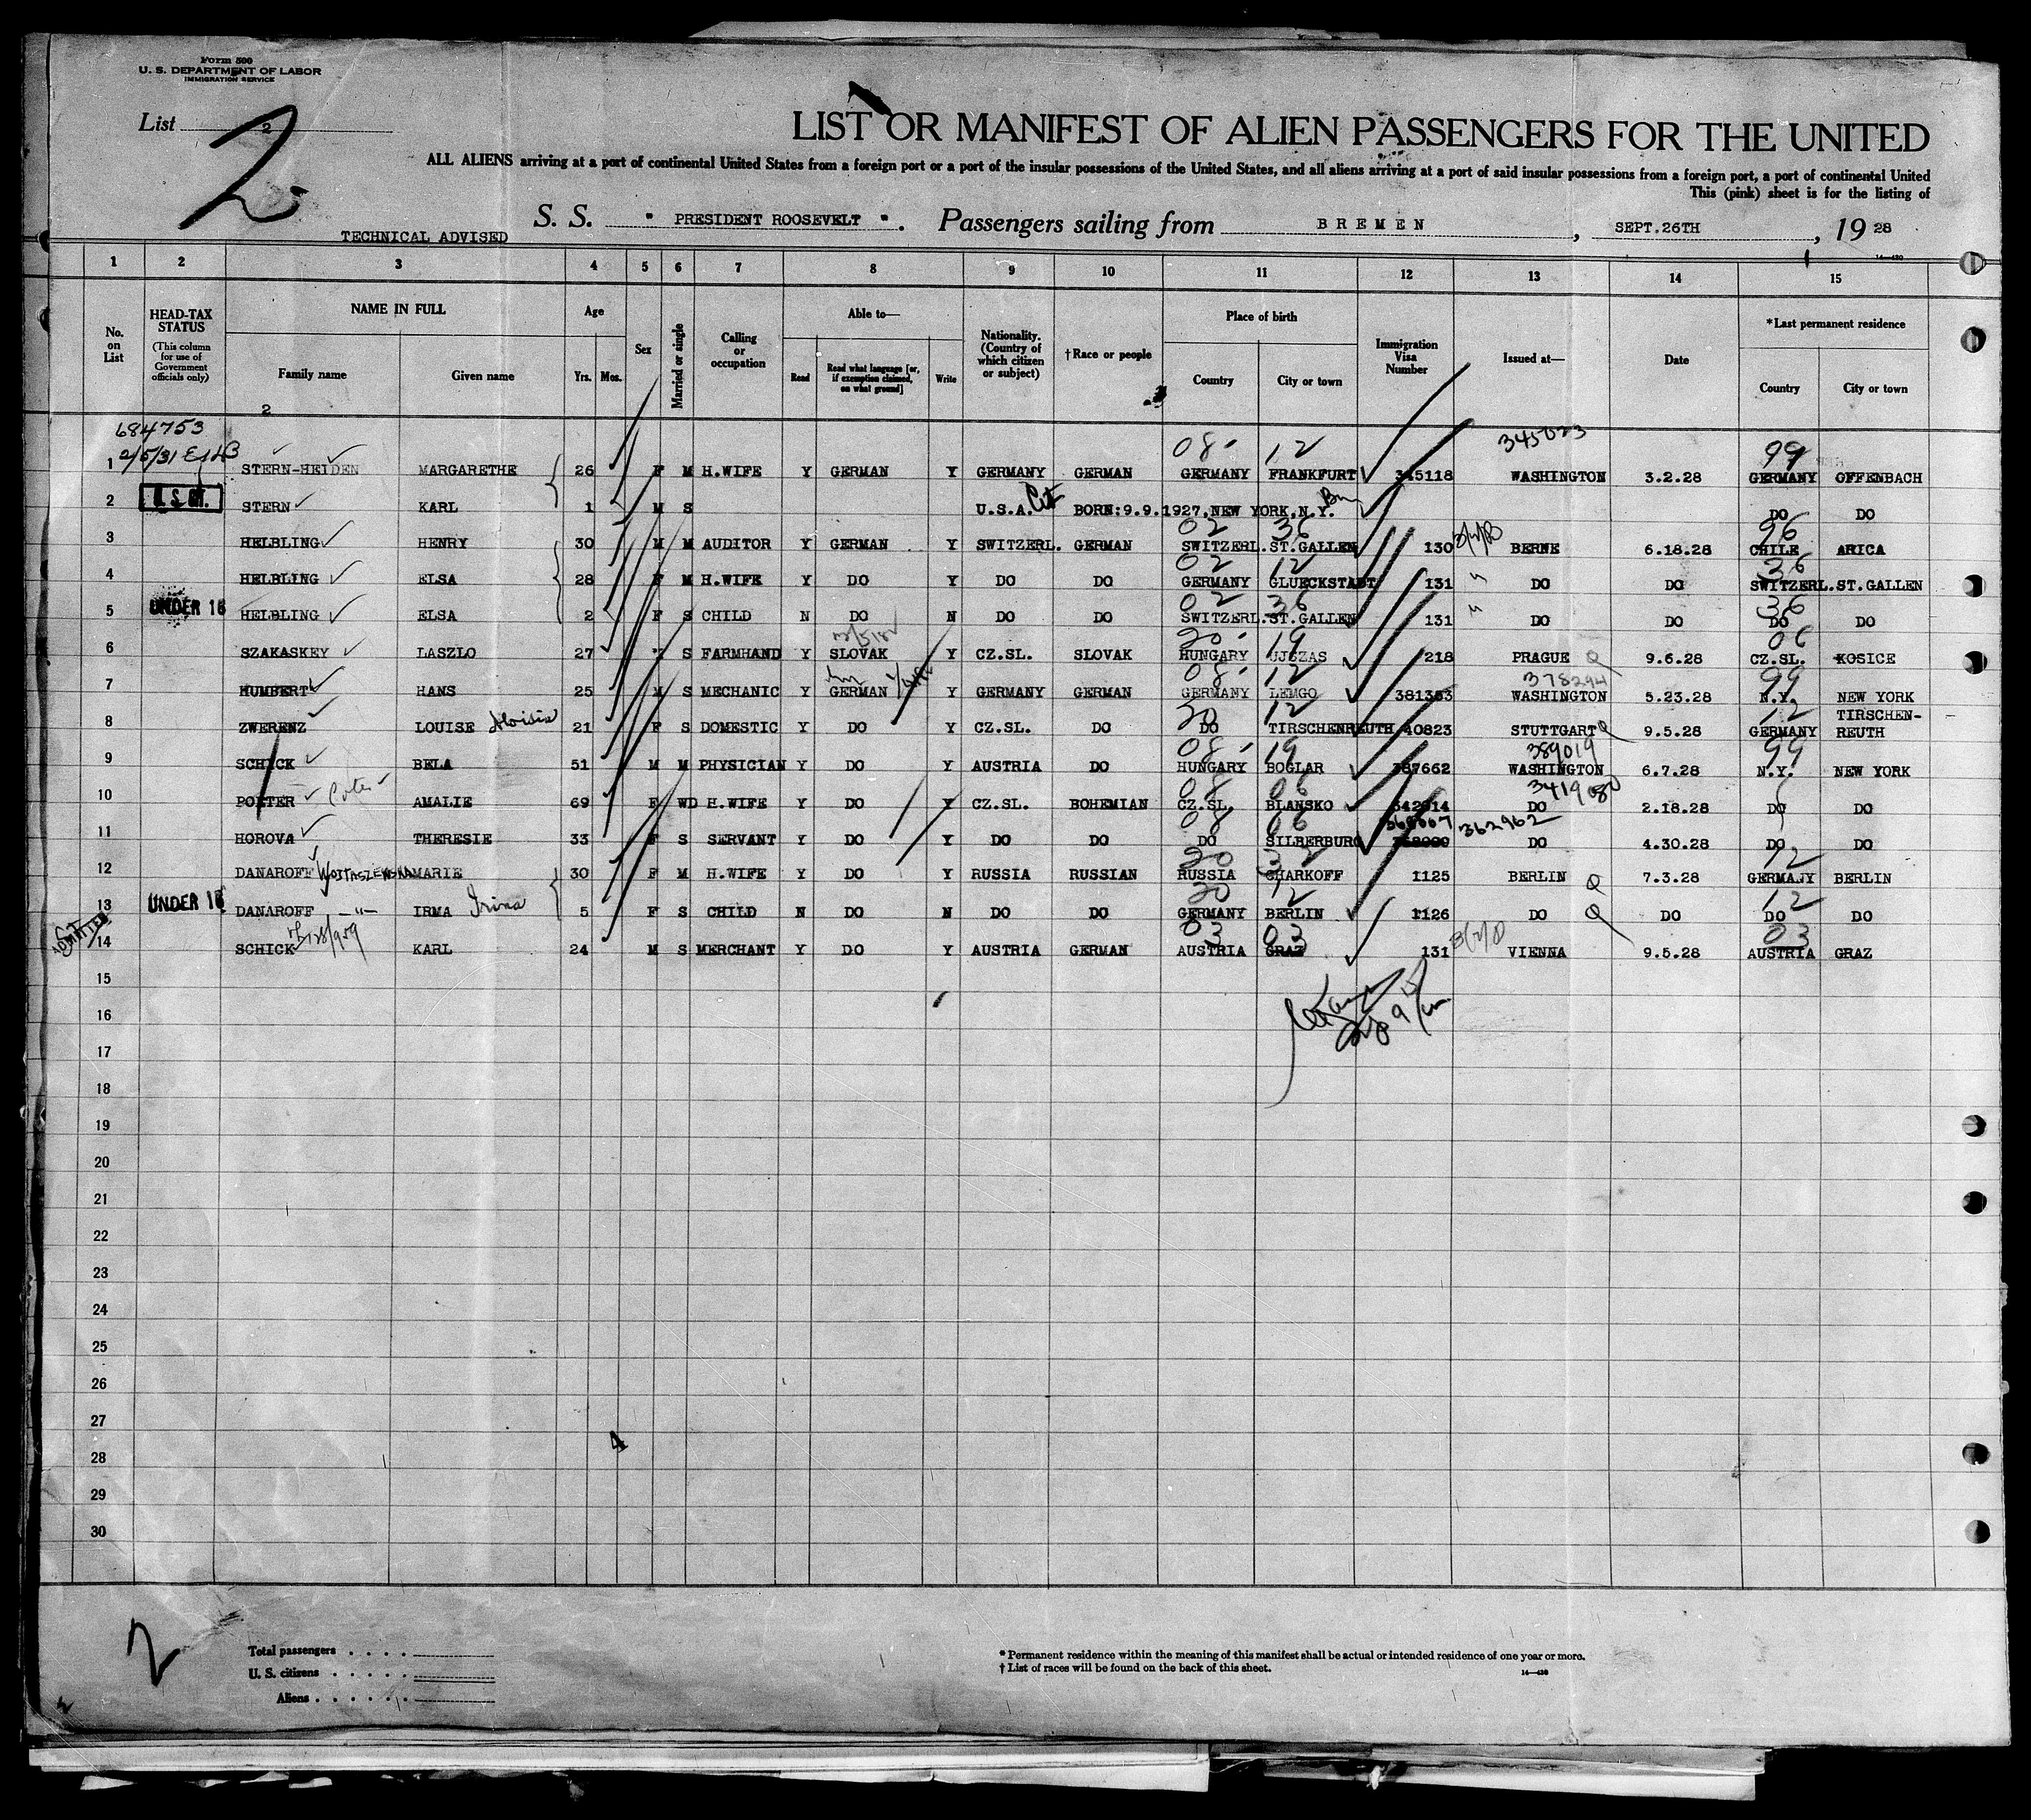 Form 500
U. S. DEPARTMENT OF LABOR
IMMIGRATION SERVICE
List 2
2
LIST OR MANIFEST OF ALIEN PASSENGERS FOR THE UNITED
ALL ALIENS arriving at a port of continental United States from a foreign port or a port of the insular possessions of the United States, and all aliens arriving at a port of said insular possessions from a foreign port, a port of continental United
This (pink) sheet is for the listing of
S. S. " PRESIDENT ROOSEVELT ". Passengers sailing from BREMEN, SEPT.26TH, 19 28
TECHNICAL ADVISED
14—430
1 2 3 4 5 6 7 8 9 10 11 12 13 14 15
No. on List
HEAD-TAX STATUS
(This column for use of Government officials only)
NAME IN FULL
Family name
Given name
Age
Yrs. Mos.
Sex
Married or single
Calling or occupation
Able to—
Read
Read what language [or, if exemption claimed, on what ground]
Write
Nationality. (Country of which citizen or subject)
†Race or people
Place of birth
Country
City or town
Immigration Visa Number
Issued at—
Date
*Last permanent residence
Country
City or town
2
684753
2/5/31
08 12 345023 99
1 STERN-HEIDEN MARGARETHE 26 F M H.WIFE Y GERMAN Y GERMANY GERMAN GERMANY FRANKFURT 345118 WASHINGTON 3.2.28 GERMANY OFFENBACH
2 U.S. CIT. STERN KARL 1 M S U.S.A. Cit BORN:9.9.1927,NEW YORK,N.Y. DO DO
02 36 96
3 HELBLING HENRY 30 M M AUDITOR Y GERMAN Y SWITZERL. GERMAN SWITZERL. ST.GALLEN 130 BERNE 6.18.28 CHILE ARICA
02 12 36
4 HELBLING ELSA 28 F M H.WIFE Y DO Y DO DO GERMANY GLUECKSTADT 131 " DO DO SWITZERL. ST.GALLEN
02 36 36
5 UNDER 16 HELBLING ELSA 2 F S CHILD N DO N DO DO SWITZERL. ST.GALLEN 131 " DO DO DO DO
20 19 06
6 SZAKASKEY LASZLO 27 S FARMHAND Y SLOVAK Y CZ.SL. SLOVAK HUNGARY UJSZAS 218 PRAGUE 9.6.28 CZ.SL. KOSICE
08 12 378294 99
7 HUMBERT HANS 25 M S MECHANIC Y GERMAN Y GERMANY GERMAN GERMANY LEMGO 381363 WASHINGTON 5.23.28 N.Y. NEW YORK
20 12 12
8 ZWERENZ LOUISE Aloisia 21 F S DOMESTIC Y DO Y CZ.SL. DO DO TIRSCHENREUTH 40823 STUTTGART 9.5.28 GERMANY TIRSCHEN-REUTH
08 19 389019 99
9 SCHICK BELA 51 M M PHYSICIAN Y DO Y AUSTRIA DO HUNGARY BOGLAR 387662 WASHINGTON 6.7.28 N.Y. NEW YORK
08 06 341980
10 PORTER AMALIE 69 F WD H.WIFE Y DO Y CZ.SL. BOHEMIAN CZ.SL. BLANSKO 342014 DO 2.18.28 DO DO
08 06 362962
11 HOROVA THERESIE 33 F S SERVANT Y DO Y DO DO DO SILBERBURG DO 4.30.28 DO DO
20 32 12
12 DANAROFF MARIE 30 F M H.WIFE Y DO Y RUSSIA RUSSIAN RUSSIA CHARKOFF 1125 BERLIN 7.3.28 GERMANY BERLIN
20 12 12
13 UNDER 16 DANAROFF —"— IRMA Irina 5 F S CHILD N DO N DO DO GERMANY BERLIN 1126 DO DO DO DO
03 03 03
14 ADMITTED SCHICK KARL 24 M S MERCHANT Y DO Y AUSTRIA GERMAN AUSTRIA GRAZ 131 VIENNA 9.5.28 AUSTRIA GRAZ
15
16
17
18
19
20
21
22
23
24
25
26
27
28
29
30
4
2
Total passengers
U. S. citizens
Aliens
* Permanent residence within the meaning of this manifest shall be actual or intended residence of one year or more.
† List of races will be found on the back of this sheet.
14—430